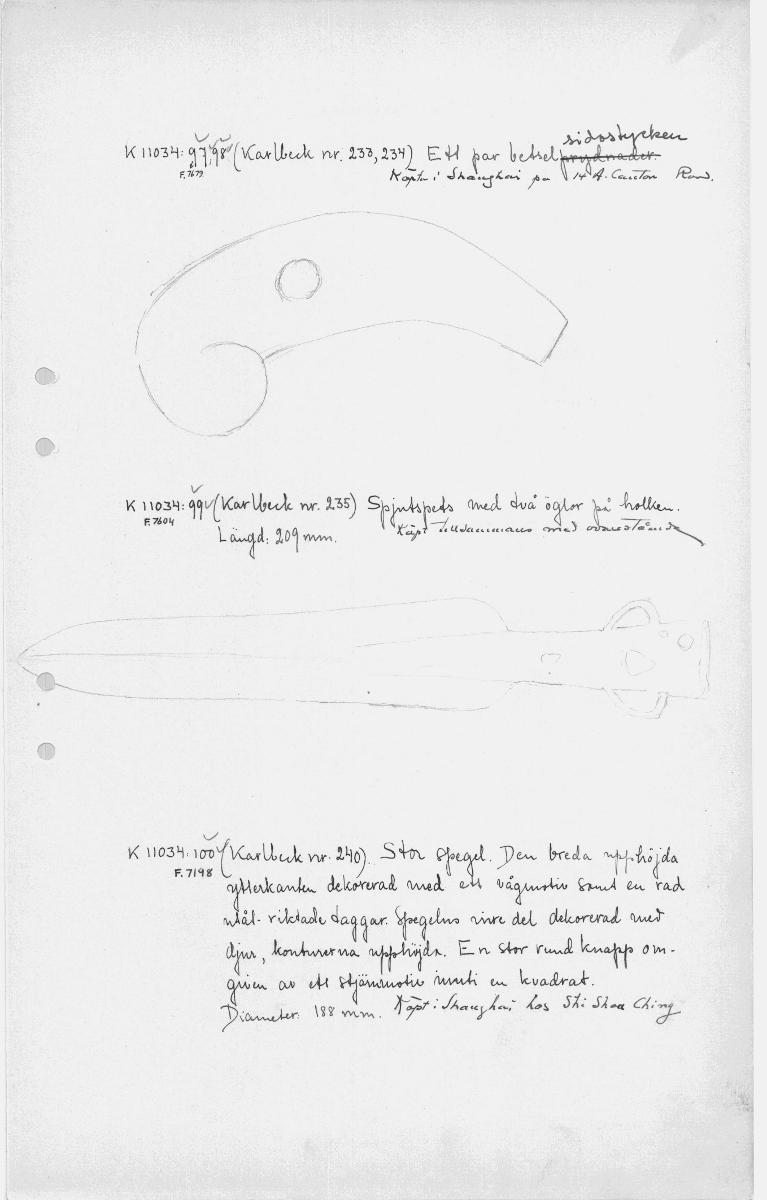 sidostycken
K 11034:97,98 (Karlbeck nr. 233, 234) Ett par betselprydnader.
F.7679
Köpta i Shanghai på 14 A. Canton Road.
K 11034:99 (Karlbeck nr. 235) Spjutspets med två öglor på holken.
F.7604
Köpt tillsammans med ovanstående
Längd: 209 mm.
K 11034:100 (Karlbeck nr. 240). Stor spegel. Den breda upphöjda
F.7198
ytterkanten dekorerad med ett vågmotiv samt en rad
utåt-riktade taggar. Spegelns inre del dekorerad med
djur, konturerna upphöjda. En stor rund knapp om-
given av ett stjärnmotiv inuti en kvadrat.
Diameter: 188 mm. Köpt i Shanghai hos Shi Shou Ching